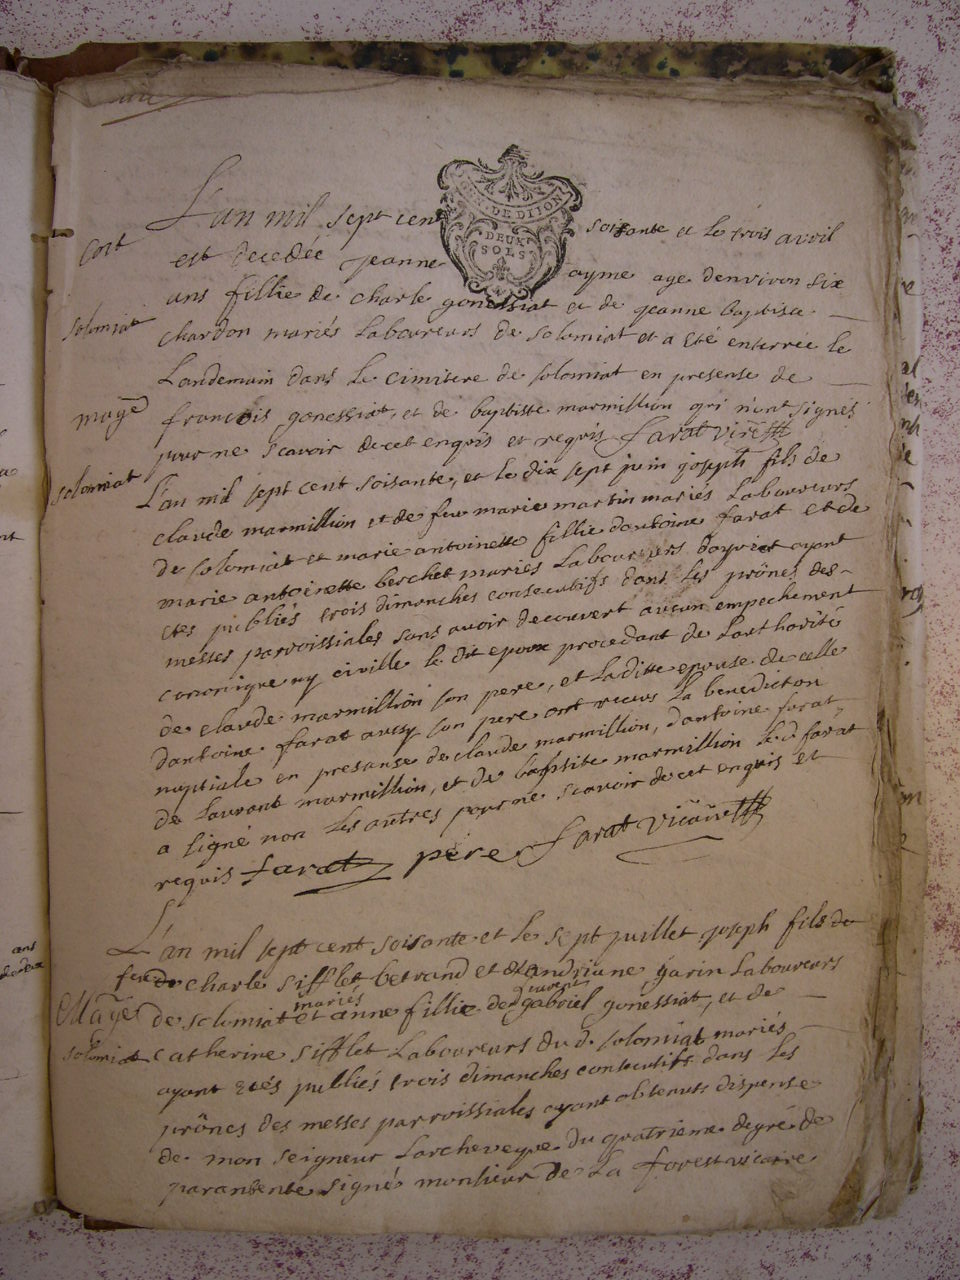 L'an mil sept cent soisante et le trois avril
GEN. DE DIJON
DEUX
SOLS
est decedée jeanne ayme age denviron six
ans fillie de charle gonessiat et de jeanne baptiste
solomiat
chardon mariés Laboureurs de solomiat et a eté enterrée le
Landemain dans le cimitere de solomiat en presense de
françois gonessiat, et de baptiste marmillion qui n'ont signés
pour ne scavoir de cet enquis et requis farat vire
solomiat
L'an mil sept cent soisante, et le dix sept juin joseph fils de
claude marmillion et de feu marie martin mariés Laboureurs
de solomiat et marie antoinette fillie dantoine farat et de
marie antoinette berchet mariés Laboureurs ayant
etes publiés trois dimanches consecutifs dans les prônes des
messes parroissiales sans avoir decouvert aucun empechement
canonique ny civille le dit epoux procedant de Lauthorité
de claude marmillion son pere, et laditte epouse de celle
dantoine farat aussy son pere ont recus La benediction
nuptiale en presanse de claude marmillion, dantoine farat,
de Laurant marmillion, et de baptiste marmillion farat
a signé non les autres pour ne scavoir de cet enquis et
requis farat père farat vicaire
L'an mil sept cent soisante et le sept juillet joseph fils de
feu charle sifflet betrand et dandriane garin Laboureurs
mariés vivent
Maye
de solomiat et anne fillie de gabriel gonessiat, et de
solomiat
catherine sifflet Laboureurs du d. solomiat mariés
ayant etés publiés trois dimanches consecutifs dans les
prônes des messes parroissiales ayant obtenut dispense
de mon seigneur Larcheveque du quatrieme degré de
parantente signé monsieur de La forest vicaire